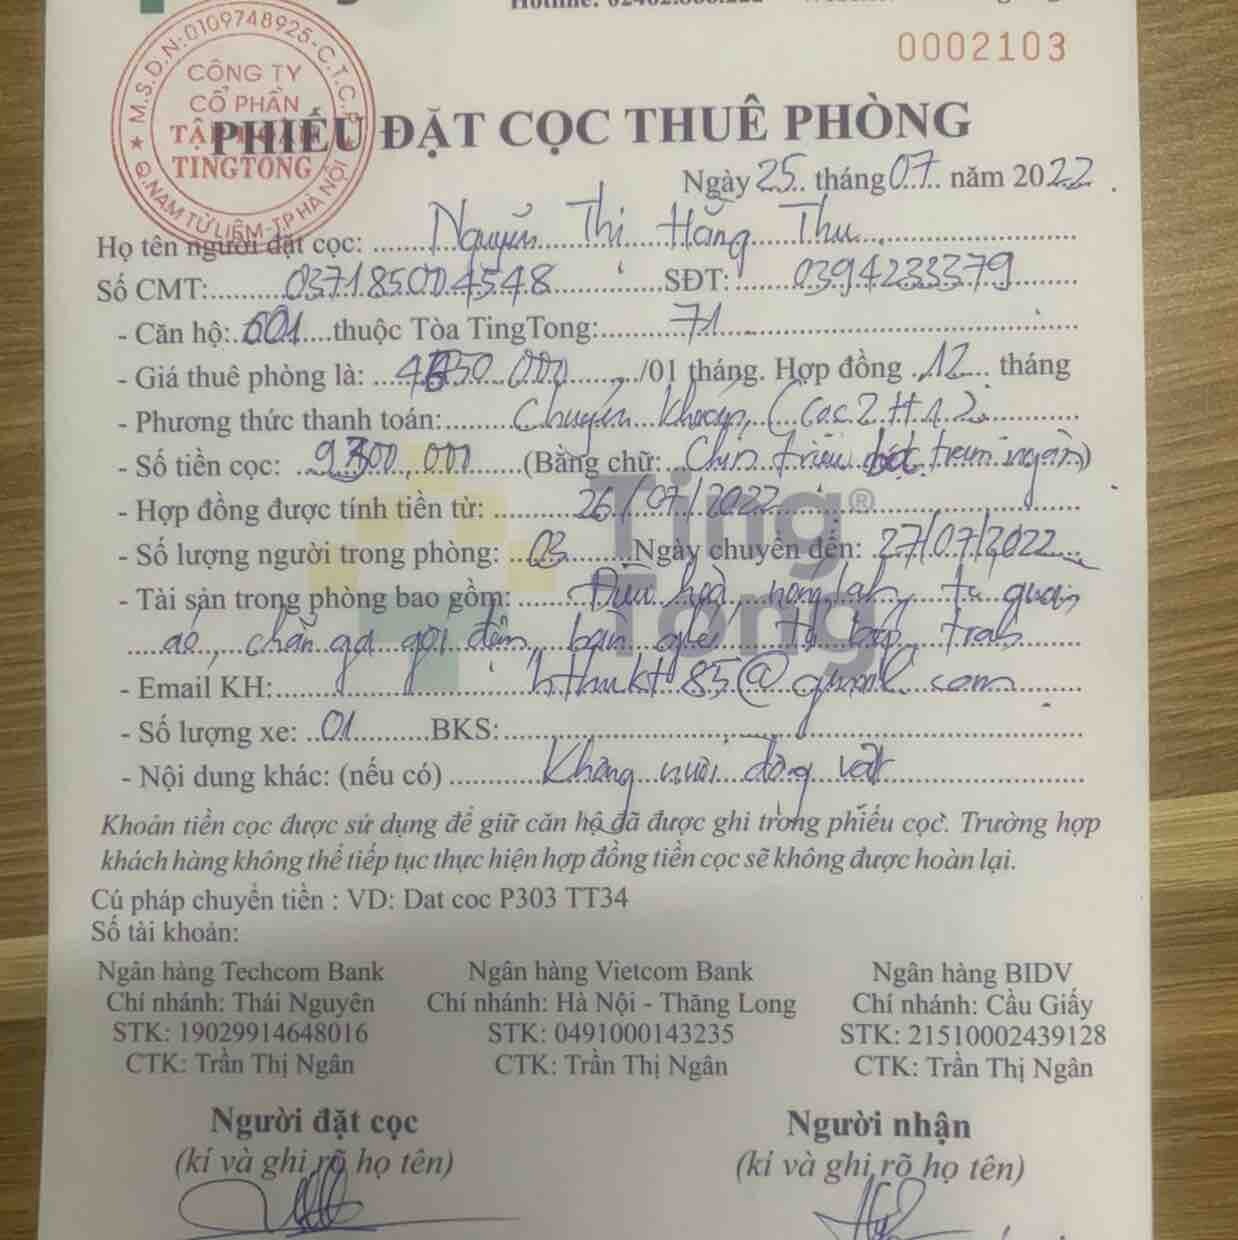 0002103
M.S.D.N:0109748925-C.T.C.P
CÔNG TY
CỔ PHẦN
TẬP ĐOÀN
TINGTONG
Q.NAM TỪ LIÊM-TP HÀ NỘI
PHIẾU ĐẶT CỌC THUÊ PHÒNG
Ngày 25 tháng 07 năm 2022
Họ tên người đặt cọc: Nguyễn Thị Hằng Thu
Số CMT: 037185004548 SĐT: 0394233379
- Căn hộ: 601 thuộc Tòa TingTong: 71
- Giá thuê phòng là: /01 tháng. Hợp đồng 12 tháng
- Phương thức thanh toán: Chuyển khoản, (Cọc 2 tt 1.2)
- Số tiền cọc: 9300,000 (Bằng chữ: Chín triệu trăm ngàn)
- Hợp đồng được tính tiền từ: 26/07/2022
- Số lượng người trong phòng: 03 Ngày chuyển đến: 27/07/2022
- Tài sản trong phòng bao gồm: Điều hoà, nóng lạnh, tủ quần
áo, chăn ga gối đệm, bàn ghế, tủ bếp,
- Email KH: @gmail.com
- Số lượng xe: 01 BKS:
- Nội dung khác: (nếu có) Không nuôi động vật
Ting® Tong
Khoản tiền cọc được sử dụng để giữ căn hộ đã được ghi trong phiếu cọc. Trường hợp
khách hàng không thể tiếp tục thực hiện hợp đồng tiền cọc sẽ không được hoàn lại.
Cú pháp chuyển tiền : VD: Dat coc P303 TT34
Số tài khoản:
Ngân hàng Techcom Bank Ngân hàng Vietcom Bank Ngân hàng BIDV
Chi nhánh: Thái Nguyên Chi nhánh: Hà Nội - Thăng Long Chi nhánh: Cầu Giấy
STK: 19029914648016 STK: 0491000143235 STK: 21510002439128
CTK: Trần Thị Ngân CTK: Trần Thị Ngân CTK: Trần Thị Ngân
Người đặt cọc Người nhận
(kí và ghi rõ họ tên) (kí và ghi rõ họ tên)